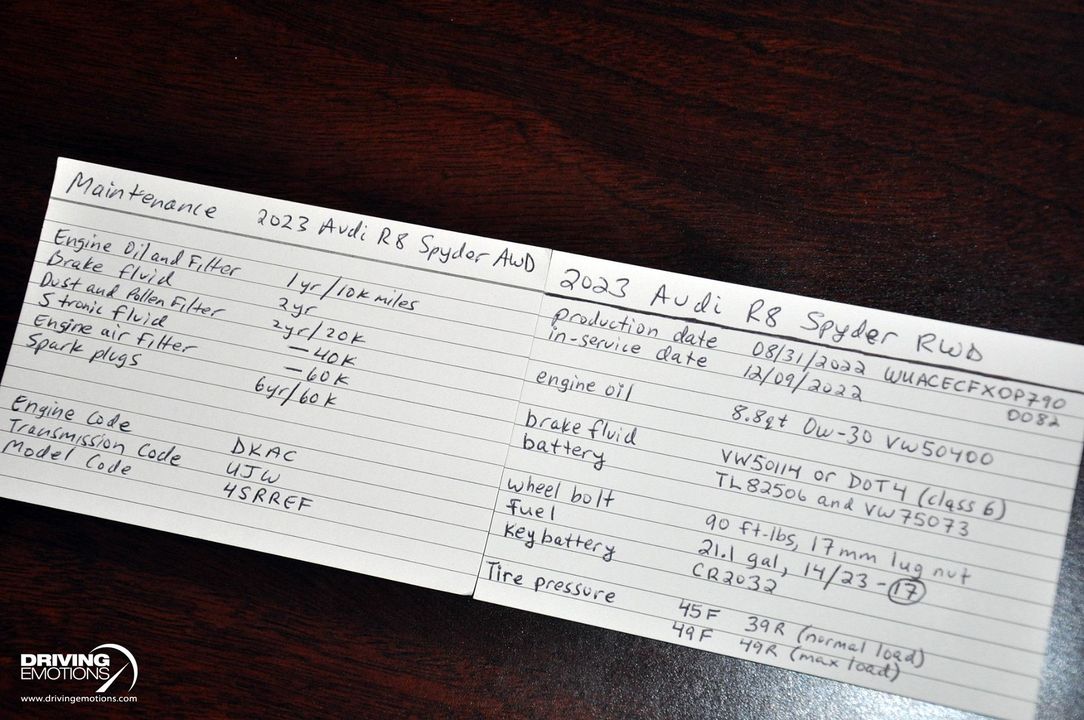 Maintenance 2023 Audi R8 Spyder AWD
Engine Oil and Filter 1yr/10k miles
Brake fluid 2yr
Dust and Pollen Filter 2yr/20K
S tronic fluid —40K
Engine air filter —60K
Spark plugs 6yr/60K
Engine Code DKAC
Transmission Code UJW
Model Code 4SRREF
2023 Audi R8 Spyder RWD
production date 08/31/2022 WUACECFX0P790
0082
in-service date 12/09/2022
engine oil 8.8qt 0w-30 VW50400
brake fluid VW50114 or DOT4 (class 6)
battery TL82506 and VW75073
wheel bolt 90 ft-lbs, 17mm lug nut
fuel 21.1 gal, 14/23-17
Key battery CR2032
Tire pressure 45F 39R (normal load)
49F 49R (max load)
DRIVING
EMOTIONS
www.drivingemotions.com